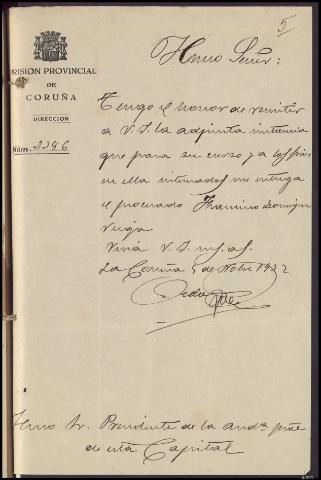 5
PRISION PROVINCIAL
DE
CORUÑA
DIRECCION
Núm. 2286
Ilmo Señor:
Tengo el honor de remitir
a V.S. la adjunta instancia
que para su curso y a los fines
en ella interesados me entrega
el procesado Francisco Dominguez
Veiga
Viva V. S. ms. as.
La Coruña 5 de Nbre 1932
Ilmo Sr. Presidente de la Audª
de esta Capital